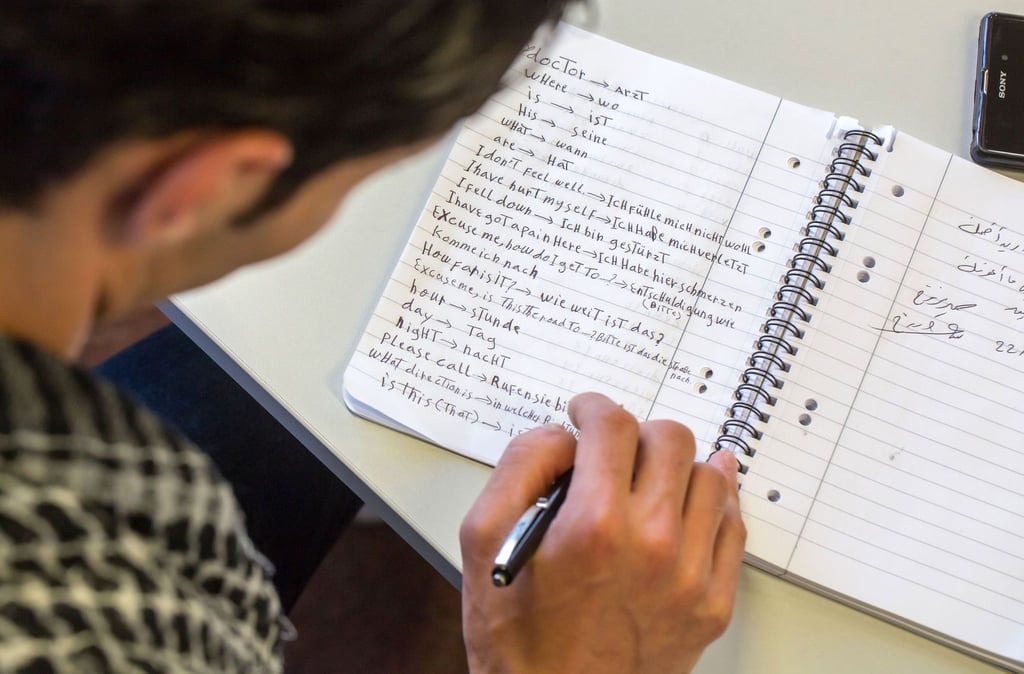 doctor → Arzt
where → wo
is → ist
His → seine
what → wann
are → Hat
I don't feel well. → Ich fühle mich nicht wohl
I have hurt myself → Ich Habe mich verletzt
I fell down → Ich bin gestürzt
I have got a pain Here → Ich Habe hier schmerzen
Excuse me, how do I get to..? → Entschuldigung wie
(Bitte)
Komme ich nach
How far is it? → wie weit ist das?
Excuse me, is This the road To → Bitte ist das die Straße
nach.
hour → stunde
day → Tag
night → nacht
please call → Rufen sie bi
what direction is → in welcher
is this (That) → is
SONY